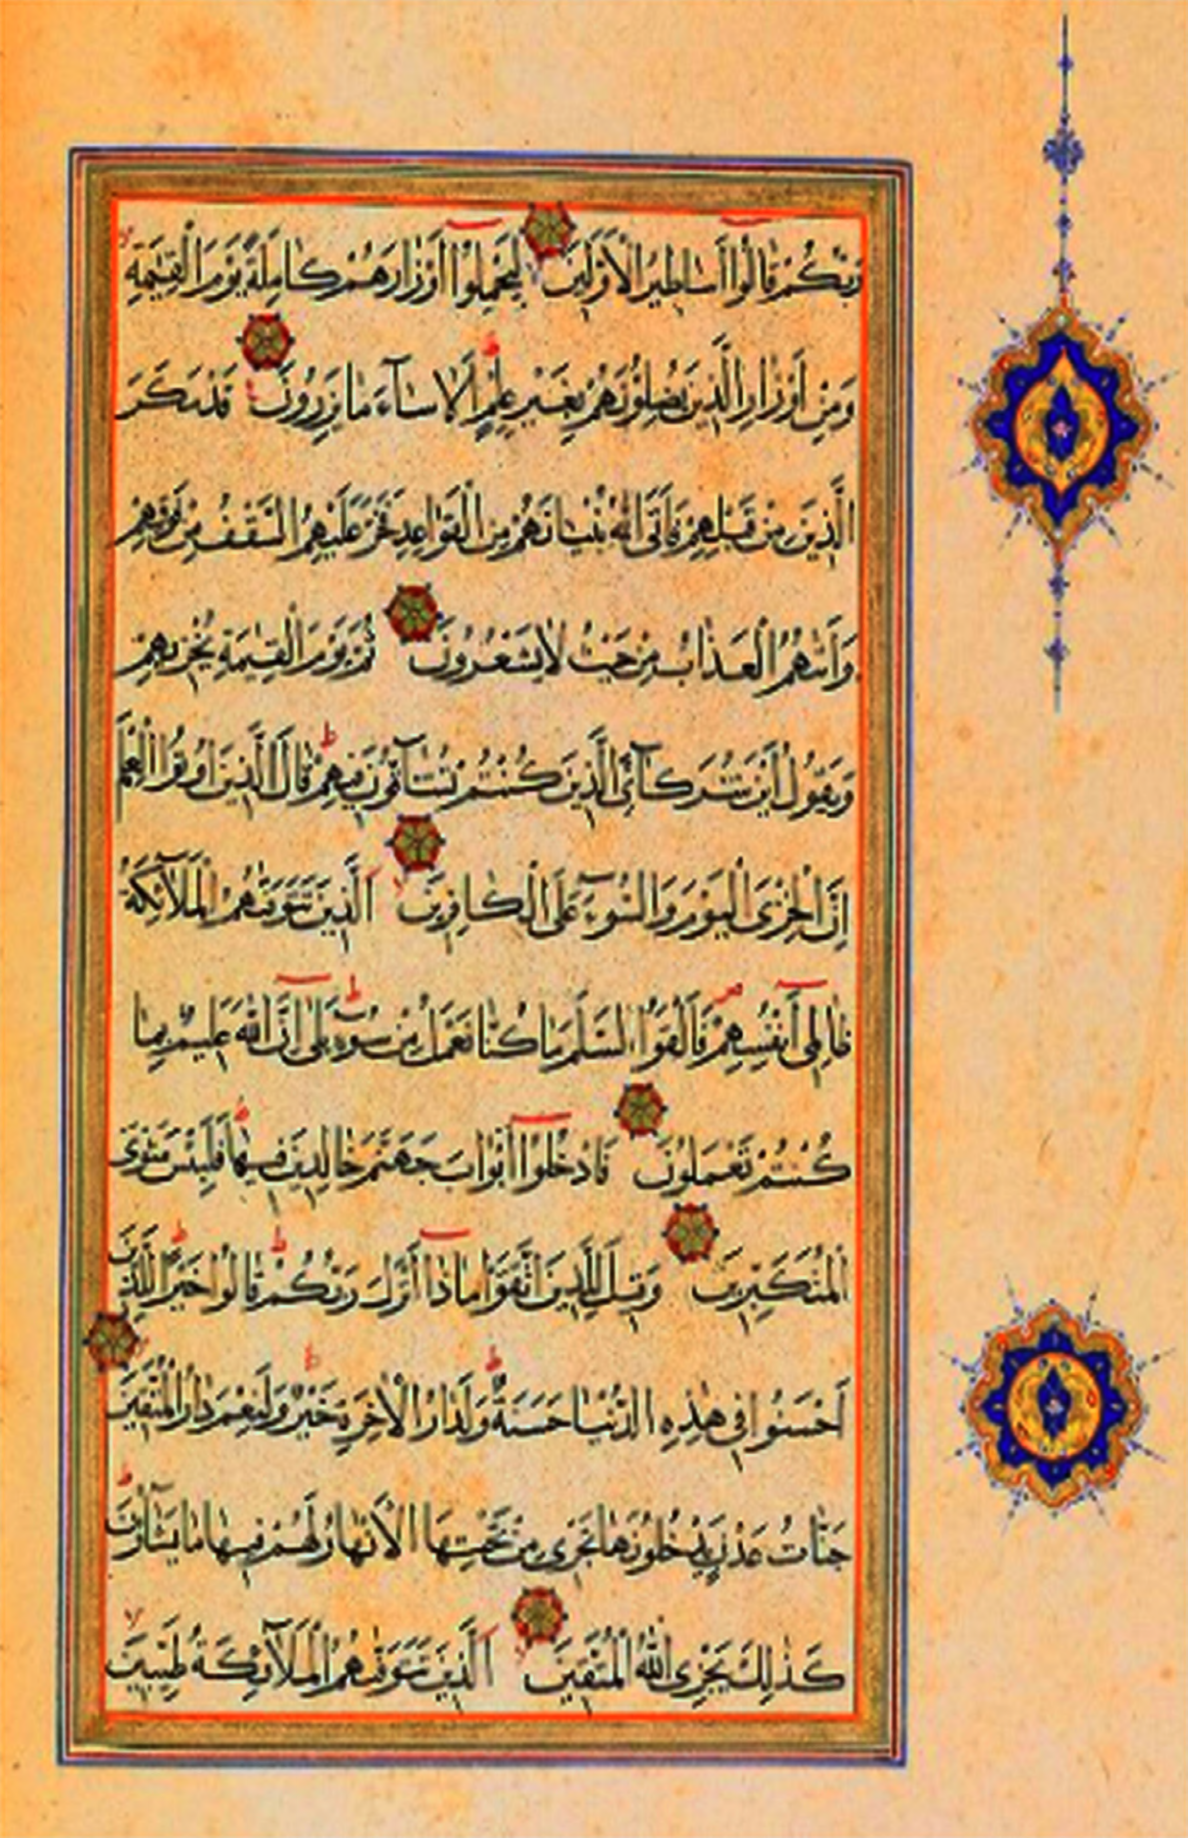 رَبُّكُمْ قَالُوا أَسَاطِيرُ الْأَوَّلِينَ لِيَحْمِلُوا أَوْزَارَهُمْ كَامِلَةً يَوْمَ الْقِيٰمَةِ
وَمِنْ أَوْزَارِ الَّذِينَ يُضِلُّونَهُمْ بِغَيْرِ عِلْمٍ أَلَا سَآءَ مَا يَزِرُونَ قَدْ مَكَرَ
الَّذِينَ مِنْ قَبْلِهِمْ فَأَتَى اللهُ بُنْيَانَهُمْ مِنَ الْقَوَاعِدِ فَخَرَّ عَلَيْهِمُ السَّقْفُ مِنْ فَوْقِهِمْ
وَأَتٰىهُمُ الْعَذَابُ مِنْ حَيْثُ لَا يَشْعُرُونَ ثُمَّ يَوْمَ الْقِيٰمَةِ يُخْزِيهِمْ
وَيَقُولُ أَيْنَ شُرَكَآئِيَ الَّذِينَ كُنْتُمْ تُشَآقُّونَ فِيهِمْ قَالَ الَّذِينَ أُوتُوا الْعِلْمَ
إِنَّ الْخِزْيَ الْيَوْمَ وَالسُّوٓءَ عَلَى الْكَافِرِينَ الَّذِينَ تَتَوَفّٰىهُمُ الْمَلَآئِكَةُ
ظَالِمِي أَنْفُسِهِمْ فَأَلْقَوُا السَّلَمَ مَا كُنَّا نَعْمَلُ مِنْ سُوٓءٍ بَلٰى إِنَّ اللهَ عَلِيمٌ بِمَا
كُنْتُمْ تَعْمَلُونَ فَادْخُلُوا أَبْوَابَ جَهَنَّمَ خَالِدِينَ فِيهَا فَلَبِئْسَ مَثْوَى
الْمُتَكَبِّرِينَ وَقِيلَ لِلَّذِينَ اتَّقَوْا مَاذَا أَنْزَلَ رَبُّكُمْ قَالُوا خَيْرًا لِلَّذِينَ
أَحْسَنُوا فِي هٰذِهِ الدُّنْيَا حَسَنَةٌ وَلَدَارُ الْأٰخِرَةِ خَيْرٌ وَلَنِعْمَ دَارُ الْمُتَّقِينَ
جَنَّاتُ عَدْنٍ يَدْخُلُونَهَا تَجْرِي مِنْ تَحْتِهَا الْأَنْهَارُ لَهُمْ فِيهَا مَا يَشَآؤُنَ
كَذٰلِكَ يَجْزِي اللهُ الْمُتَّقِينَ الَّذِينَ تَتَوَفّٰىهُمُ الْمَلَآئِكَةُ طَيِّبِينَ